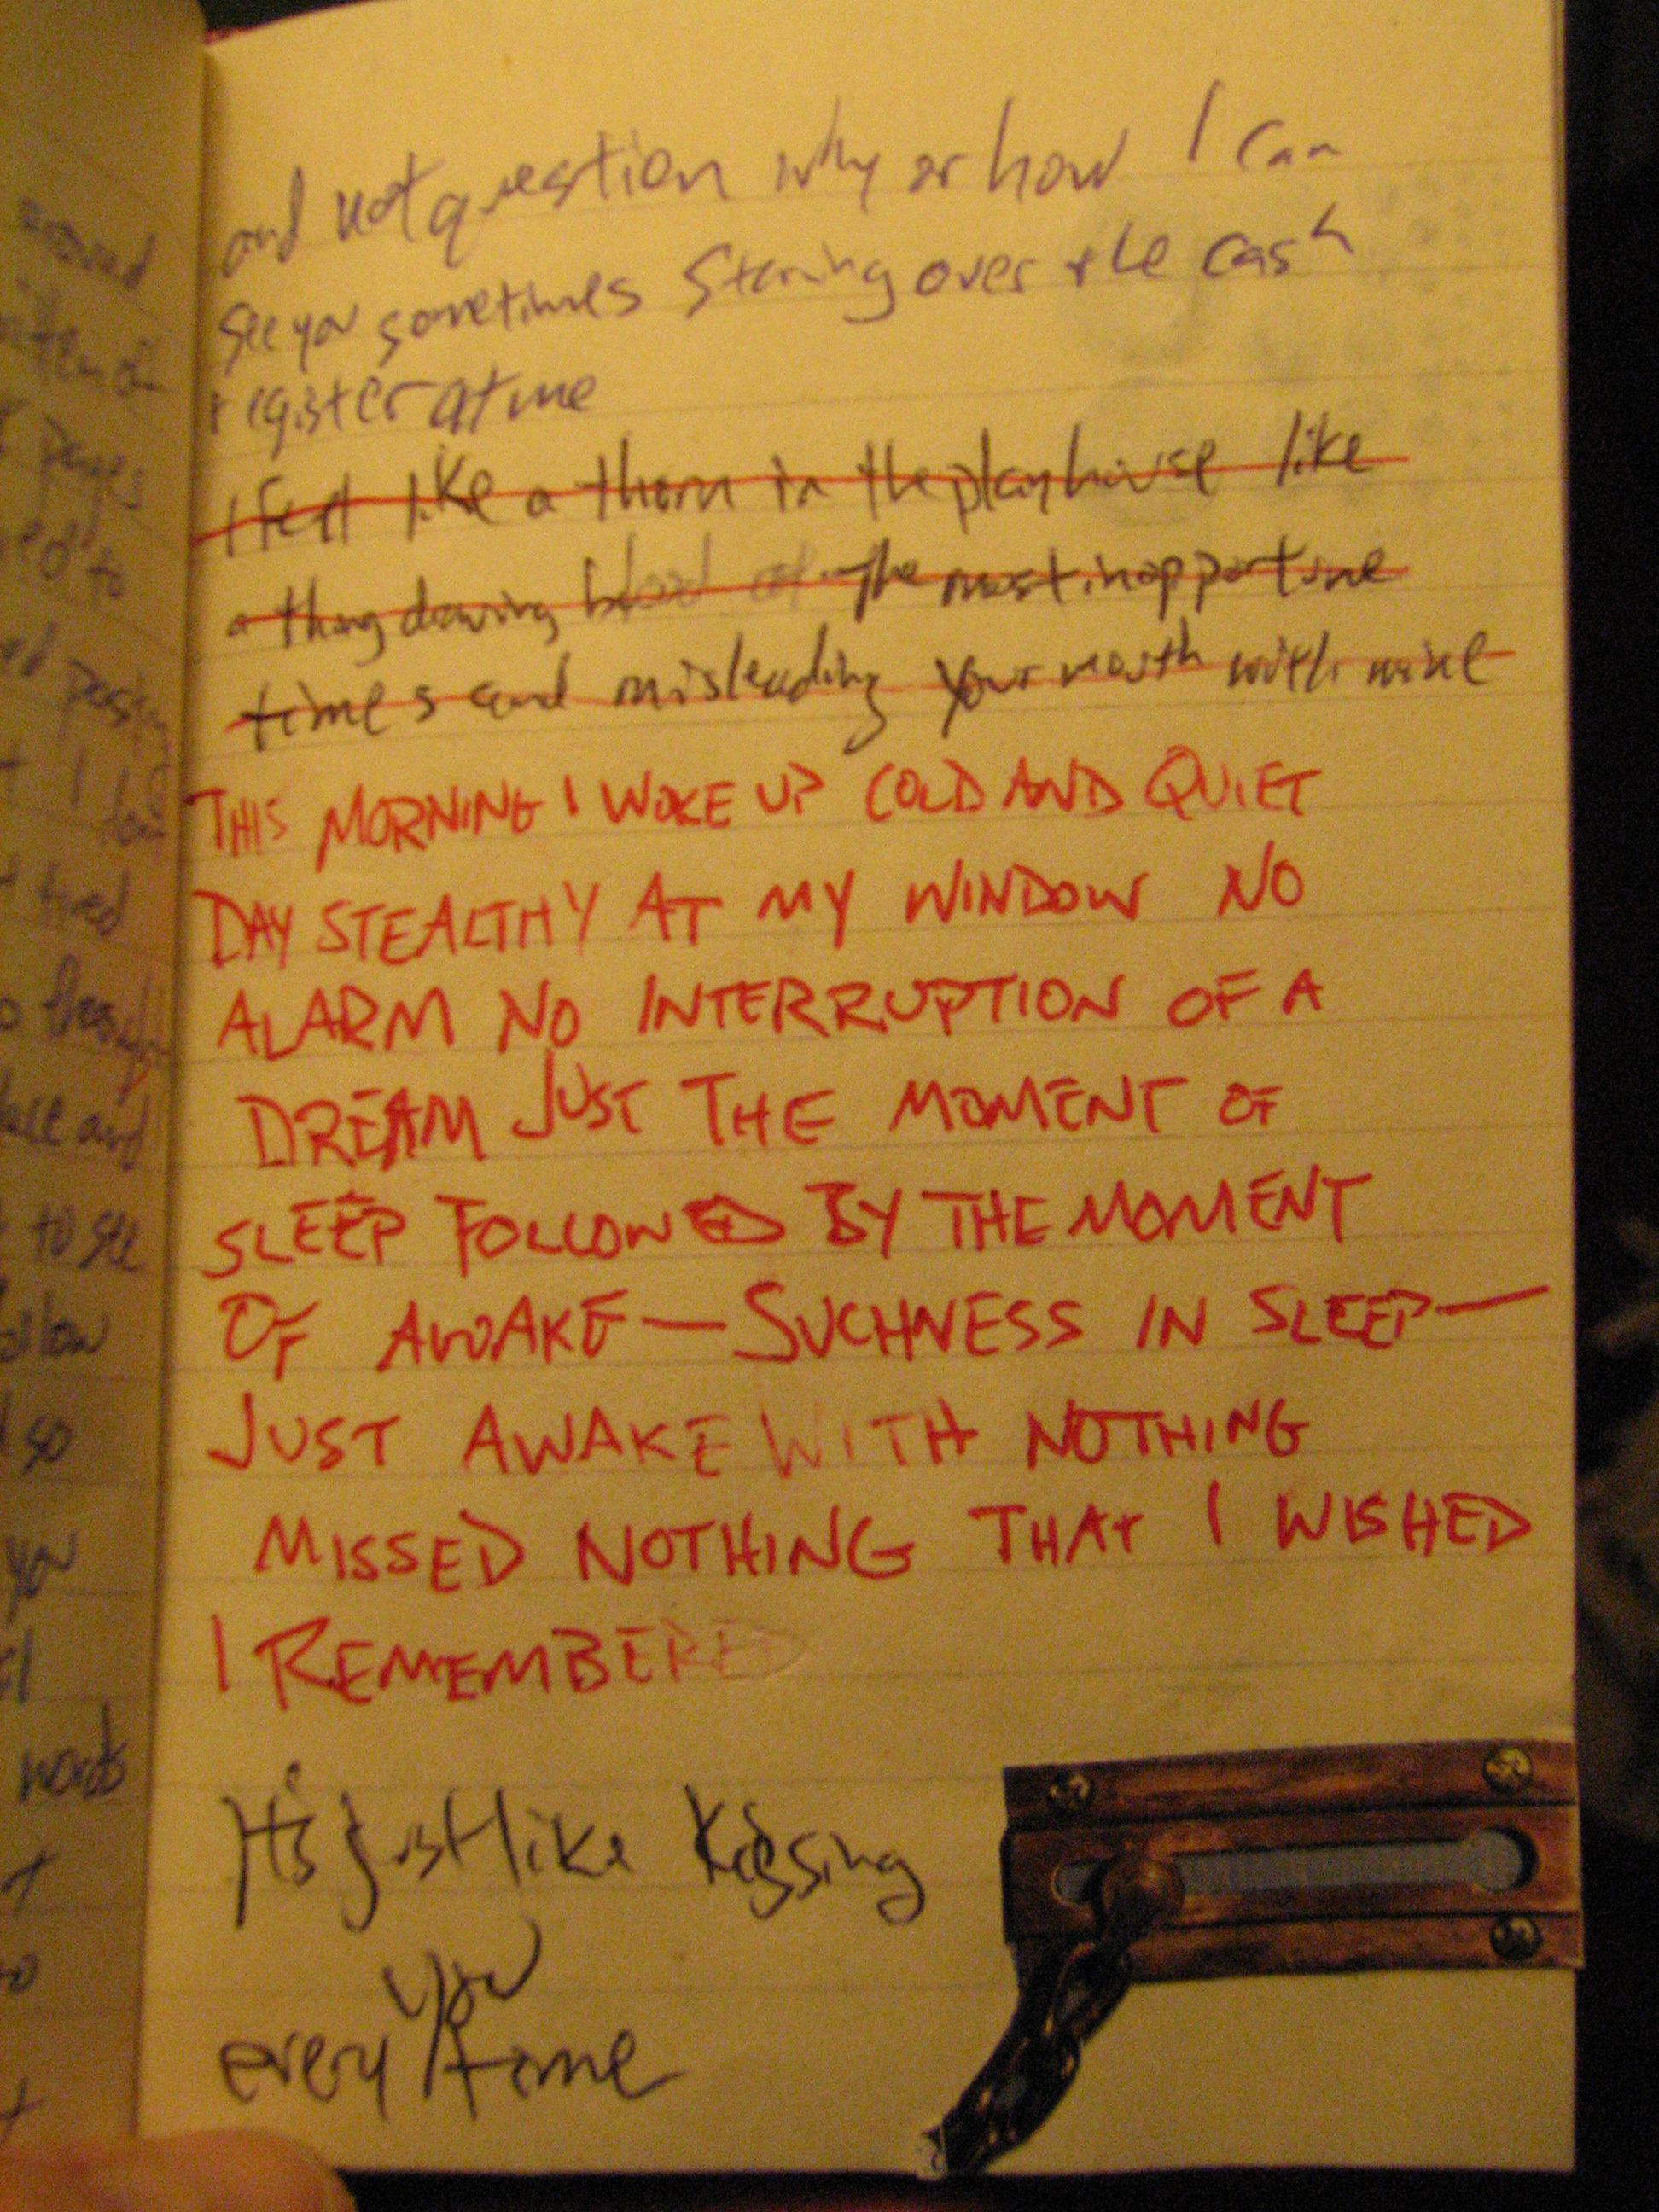 and not question why or how I can
see you sometimes staring over the cash
register at me
I feel like a thorn in the playhouse like
a thing drawing blood at the most inopportune
times and misleading your mouth with mine
THIS MORNING I WOKE UP COLD AND QUIET
DAY STEALTHY AT MY WINDOW NO
ALARM NO INTERRUPTION OF A
DREAM JUST THE MOMENT OF
SLEEP FOLLOWED BY THE MOMENT
OF AWAKE — SUCHNESS IN SLEEP —
JUST AWAKE WITH NOTHING
MISSED NOTHING THAT I WISHED
I REMEMBERED
It's just like kissing
you
every time
to see
so
you
words